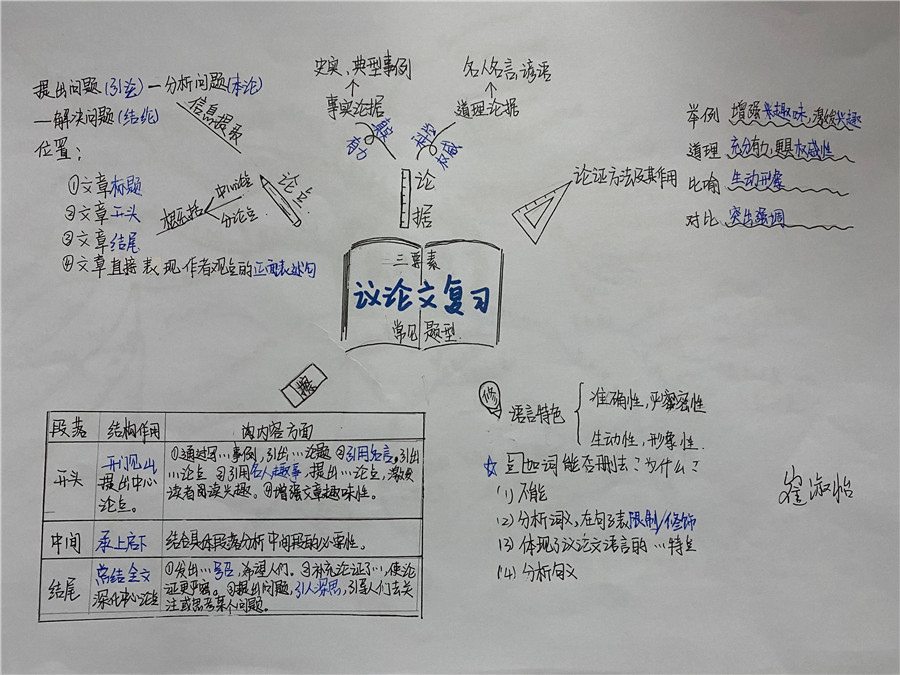 提出问题(引论)—分析问题(本论)
—解决问题(结论)
信息提取
位置：
①文章标题
②文章开头
③文章结尾
④文章直接表现作者观点的正面表述句
概括
中心论点
分论点
论点
史实、典型事例
事实论据
名人名言,谚语
道理论据
权威
论
据
论证方法及其作用
举例 增强兴趣味,激发兴趣
道理 充分有力,更具权威性
比喻 生动形象
对比 突出强调
三要素
议论文复习
常见题型
擦
段落 结构作用 内容方面
开头
开门见山
提出中心
论点。
①通过写…事例,引出…论题②引用名言,引出
…论点 ③引用名人趣事,提出…论点,激发
读者阅读兴趣。④增强文章趣味性。
中间 承上启下 结合具体段落分析中间段的必要性。
结尾
总结全文
深化中心论点
①发出…号召,希望人们。②补充论证了…,使论
证更严密。③提出问题,引人深思,引导人们去关
注或思考某个问题。
修
语言特色
准确性,严密性
生动性,形象性.
☆ 加词能否删去?为什么?
(1)不能
(2)分析词义,在句子表限制/修饰
(3)体现了议论文语言的…特点
(4)分析句义
崔淑怡